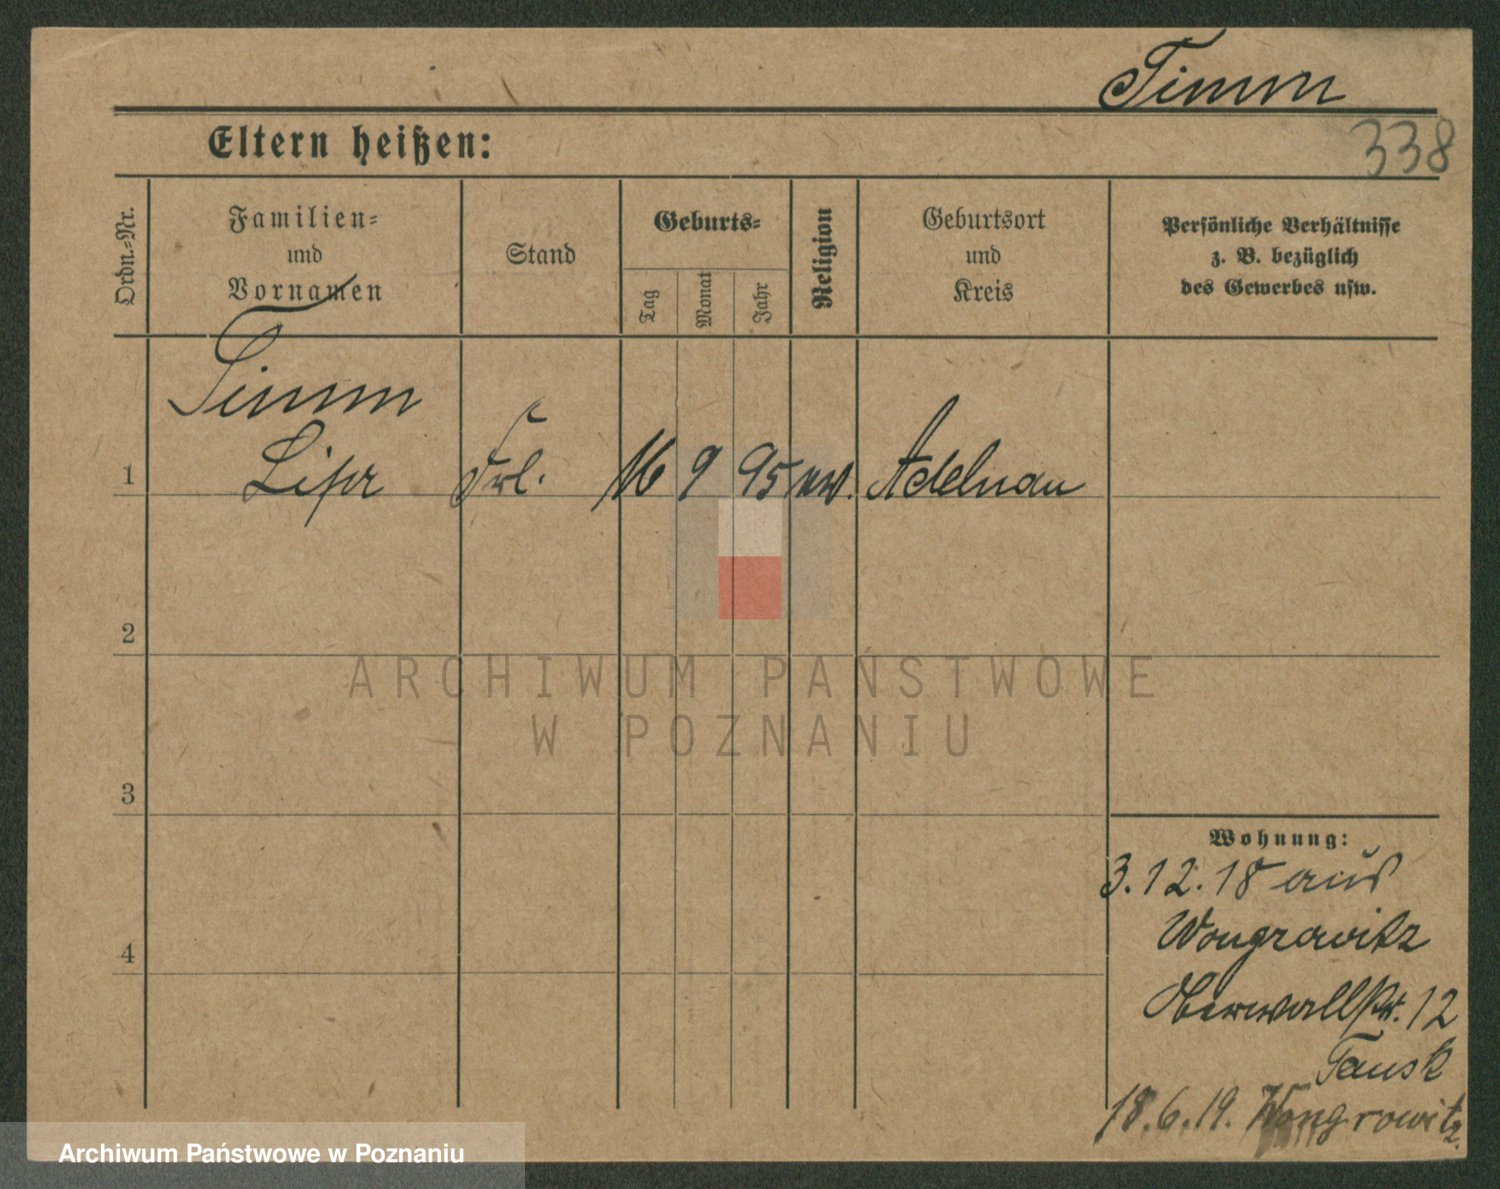 Timm
338
Eltern heißen:
Ordn.-Nr.
Familien-
und
Vornamen
Stand
Geburts-
Tag
Monat
Jahr
Religion
Geburtsort
und
Kreis
Persönliche Verhältnisse
z. B. bezüglich
des Gewerbes usw.
Timm
1 Frl. 16 9 95 ev. Adelnau
2
3
4
Wohnung:
3.12.18 aus
Wongrowitz
Oberwallstr. 12
Tausk
18.6.19. Wongrowitz.
ARCHIWUM PAŃSTWOWE
W POZNANIU
Archiwum Państwowe w Poznaniu